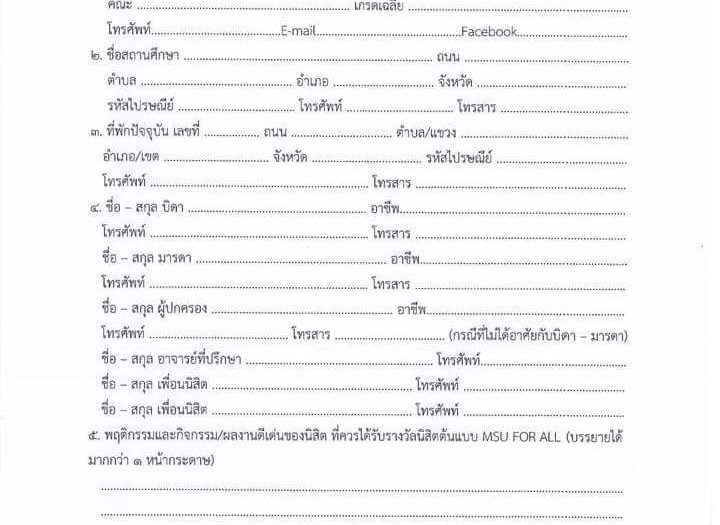 คณะ ........................................................ เกรดเฉลี่ย ........................................................
โทรศัพท์.................................E-mail.....................................Facebook............................
๒. ชื่อสถานศึกษา ................................................................ ถนน ..........................................
ตำบล ....................................... อำเภอ .......................... จังหวัด .......................................
รหัสไปรษณีย์ .............................. โทรศัพท์ ............................ โทรสาร .................................
๓. ที่พักปัจจุบัน เลขที่ .............. ถนน .......................... ตำบล/แขวง ...........................................
อำเภอ/เขต ........................... จังหวัด ............................. รหัสไปรษณีย์ ..................................
โทรศัพท์ ......................................................... โทรสาร ......................................................
๔. ชื่อ – สกุล บิดา .............................................. อาชีพ..........................................................
โทรศัพท์ ......................................................... โทรสาร ......................................................
ชื่อ – สกุล มารดา ................................................. อาชีพ.....................................................
โทรศัพท์ ......................................................... โทรสาร ......................................................
ชื่อ – สกุล ผู้ปกครอง ............................................... อาชีพ...................................................
โทรศัพท์ .................................... โทรสาร ............................. (กรณีที่ไม่ได้อาศัยกับบิดา – มารดา)
ชื่อ – สกุล อาจารย์ที่ปรึกษา ................................................ โทรศัพท์.....................................
ชื่อ – สกุล เพื่อนนิสิต .................................................... โทรศัพท์ .........................................
ชื่อ – สกุล เพื่อนนิสิต .................................................... โทรศัพท์ .........................................
๕. พฤติกรรมและกิจกรรม/ผลงานดีเด่นของนิสิต ที่ควรได้รับรางวัลนิสิตต้นแบบ MSU FOR ALL (บรรยายได้
มากกว่า ๑ หน้ากระดาษ)
........................................................................................................................................
........................................................................................................................................